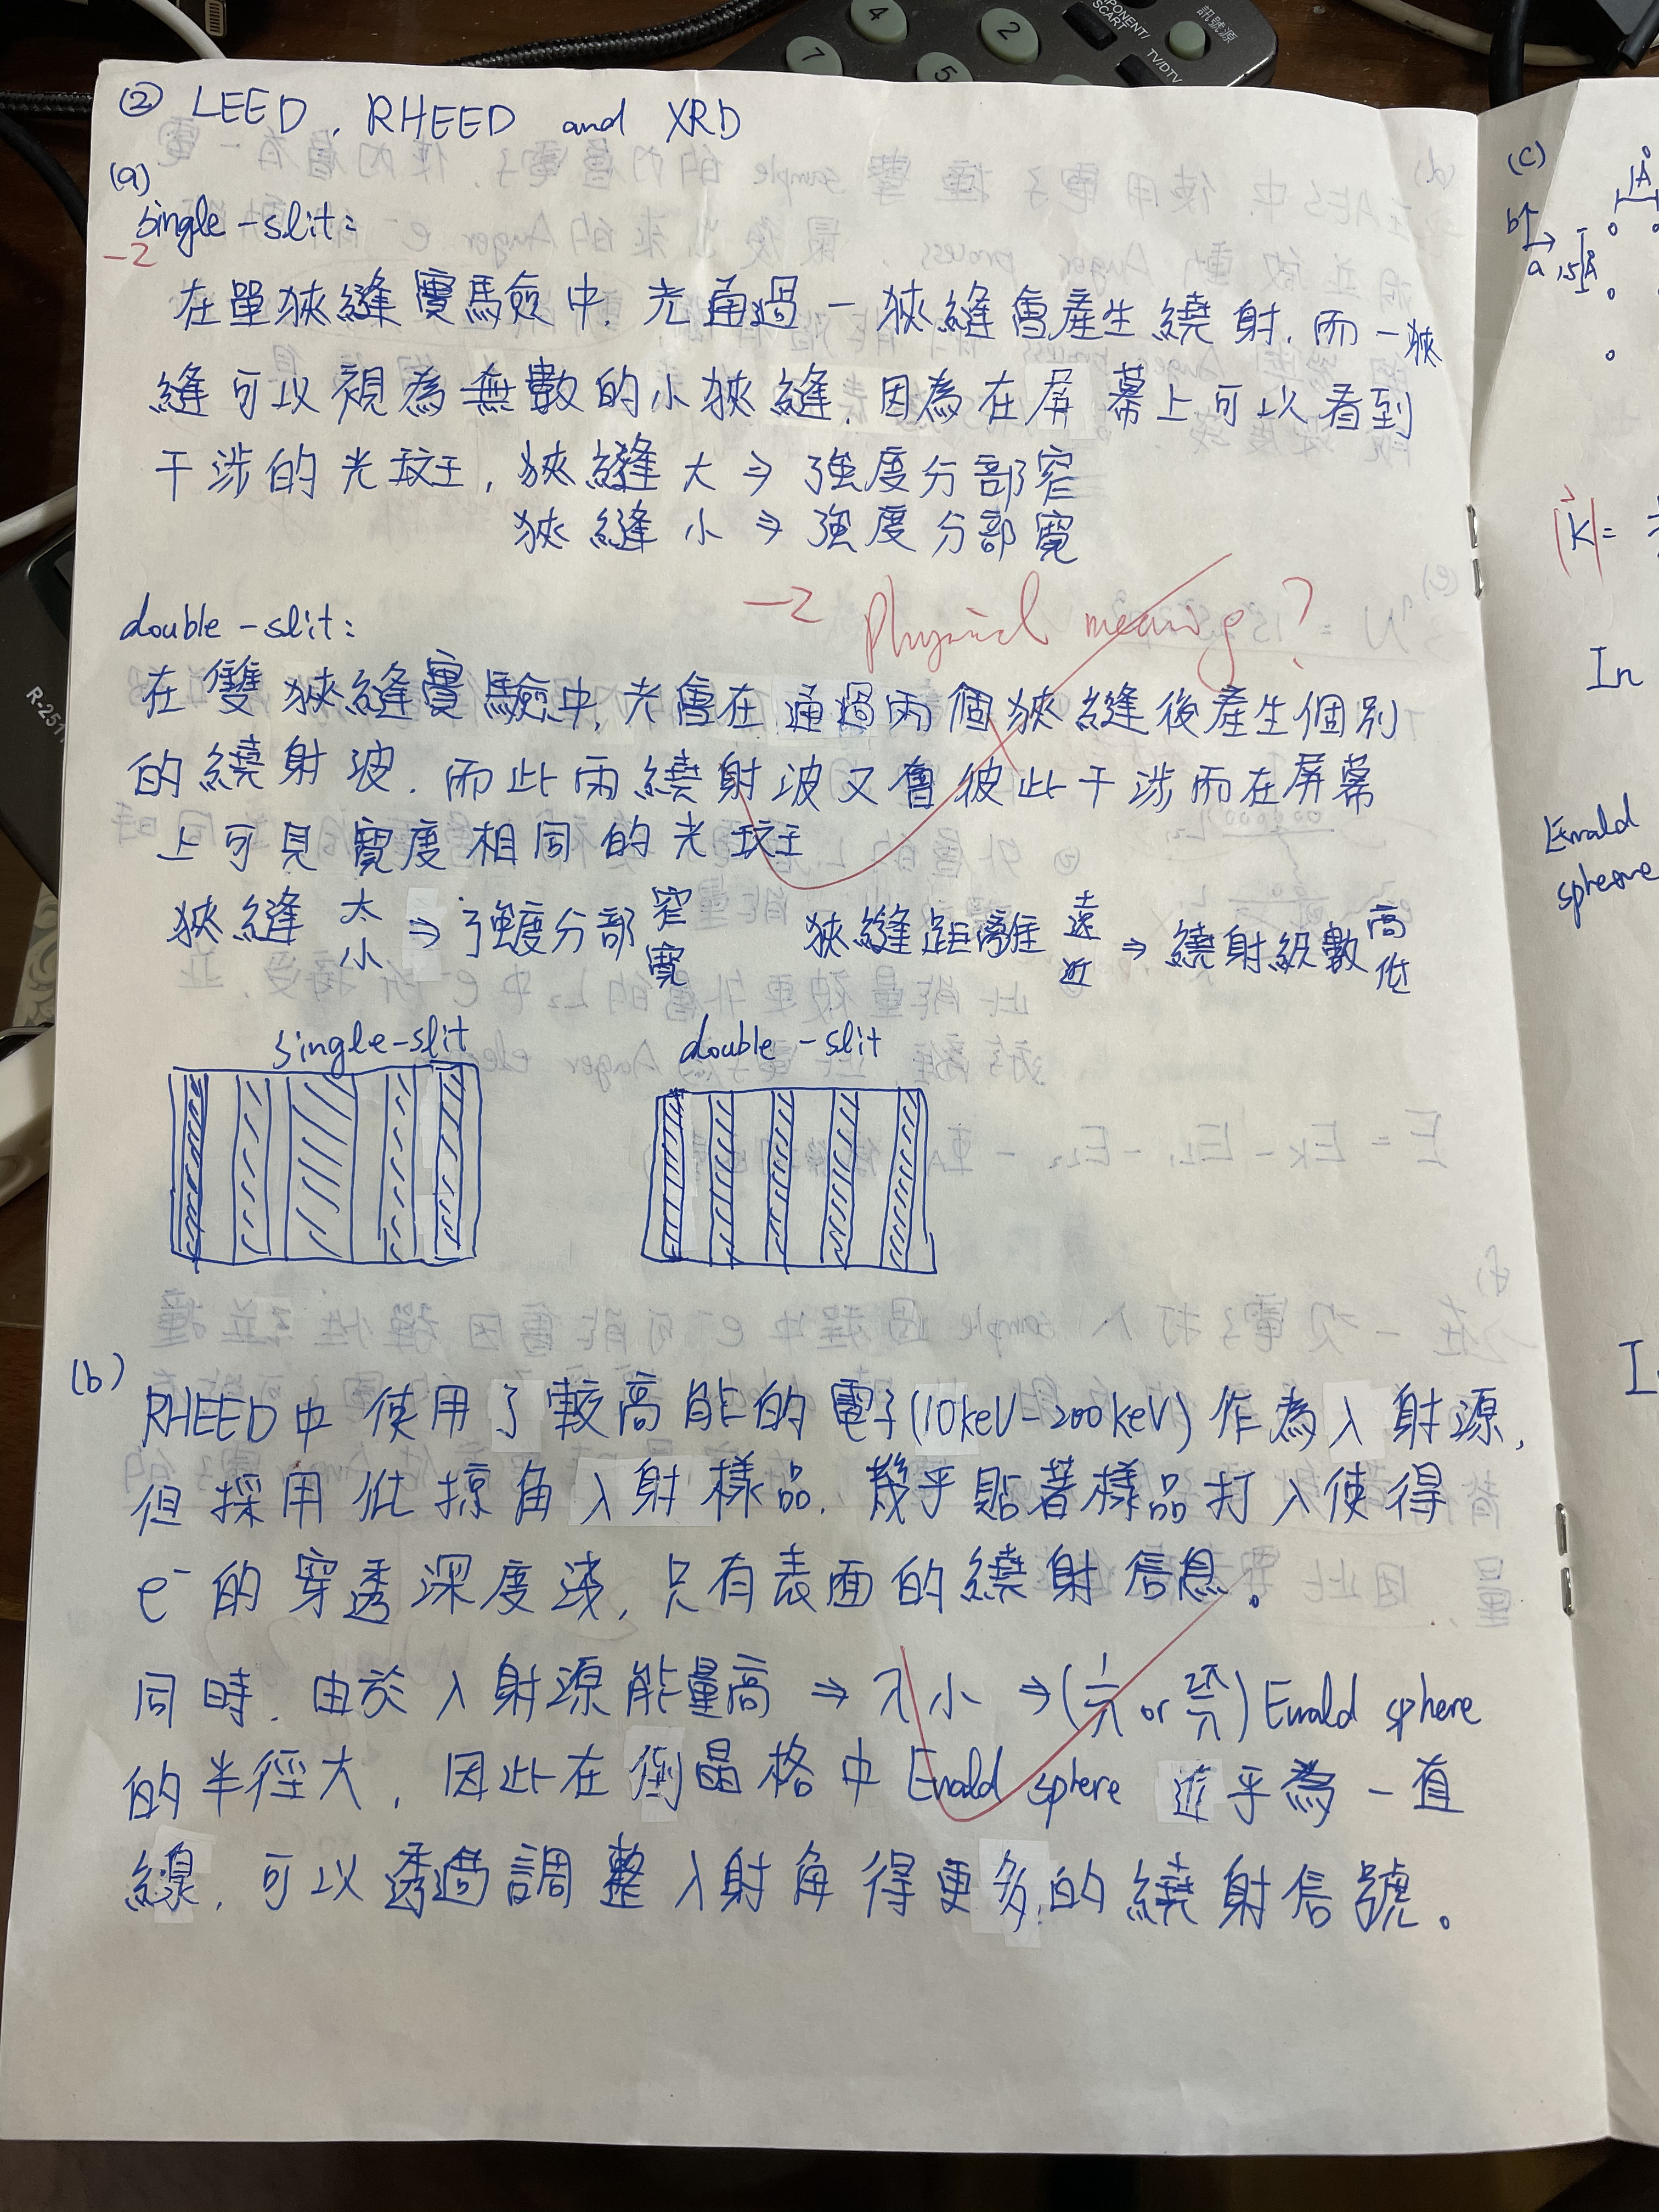 ② LEED, RHEED and XRD
(a)
single-slit:
-2
在單狹縫實驗中, 光通過一狹縫會產生繞射, 而一狹
縫可以視為無數的小狹縫, 因為在屏幕上可以看到
干涉的光斑, 狹縫大 ⇒ 強度分部窄
狹縫小 ⇒ 強度分部寬
-2 Physical meaning?
double-slit:
在雙狹縫實驗中, 光會在通過兩個狹縫後產生個別
的繞射波. 而此兩繞射波又會彼此干涉而在屏幕
上可見寬度相同的光斑
狹縫 大 小 ⇒ 強度分部 窄 寬 狹縫距離 遠 近 ⇒ 繞射級數 高 低
single-slit double-slit
(b)
RHEED中使用了較高能的電子(10keV-200keV) 作為入射源,
但採用低掠角入射樣品. 幾乎貼著樣品打入使得
e⁻的穿透深度淺, 只有表面的繞射信息。
同時. 由於入射源能量高 ⇒ λ小 ⇒ (1/λ or 2π/λ) Ewald sphere
的半徑大, 因此在倒晶格中 Ewald sphere 近乎為一直
線, 可以透過調整入射角得更多的繞射信號。
(c)
1Å
b
a 1.5Å
|K|=
In
Ewald
sphere
4
2
7
5
COMPONENT/
SCART
TV/DTV
訊號源